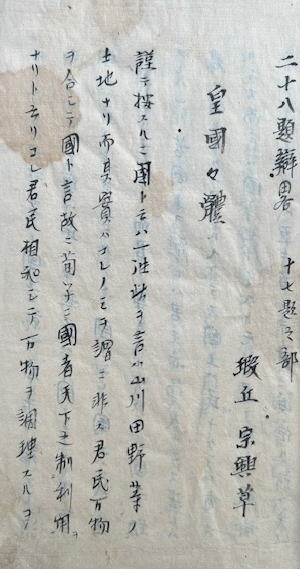 二十八題辯畧 十七題之部
瑕丘 宗興草
皇國々體
謹テ按スルニ國ト云ハ一 ヲ言 山川田野 ノ
土地ナリ而其實ハコレノミヲ謂ニ非ス君民百物
ヲ合シテ國ト言故ニ荀子ニ國者天下之制利用
ナリト云リコレ君民相和シテ百物ヲ調理スルヲ